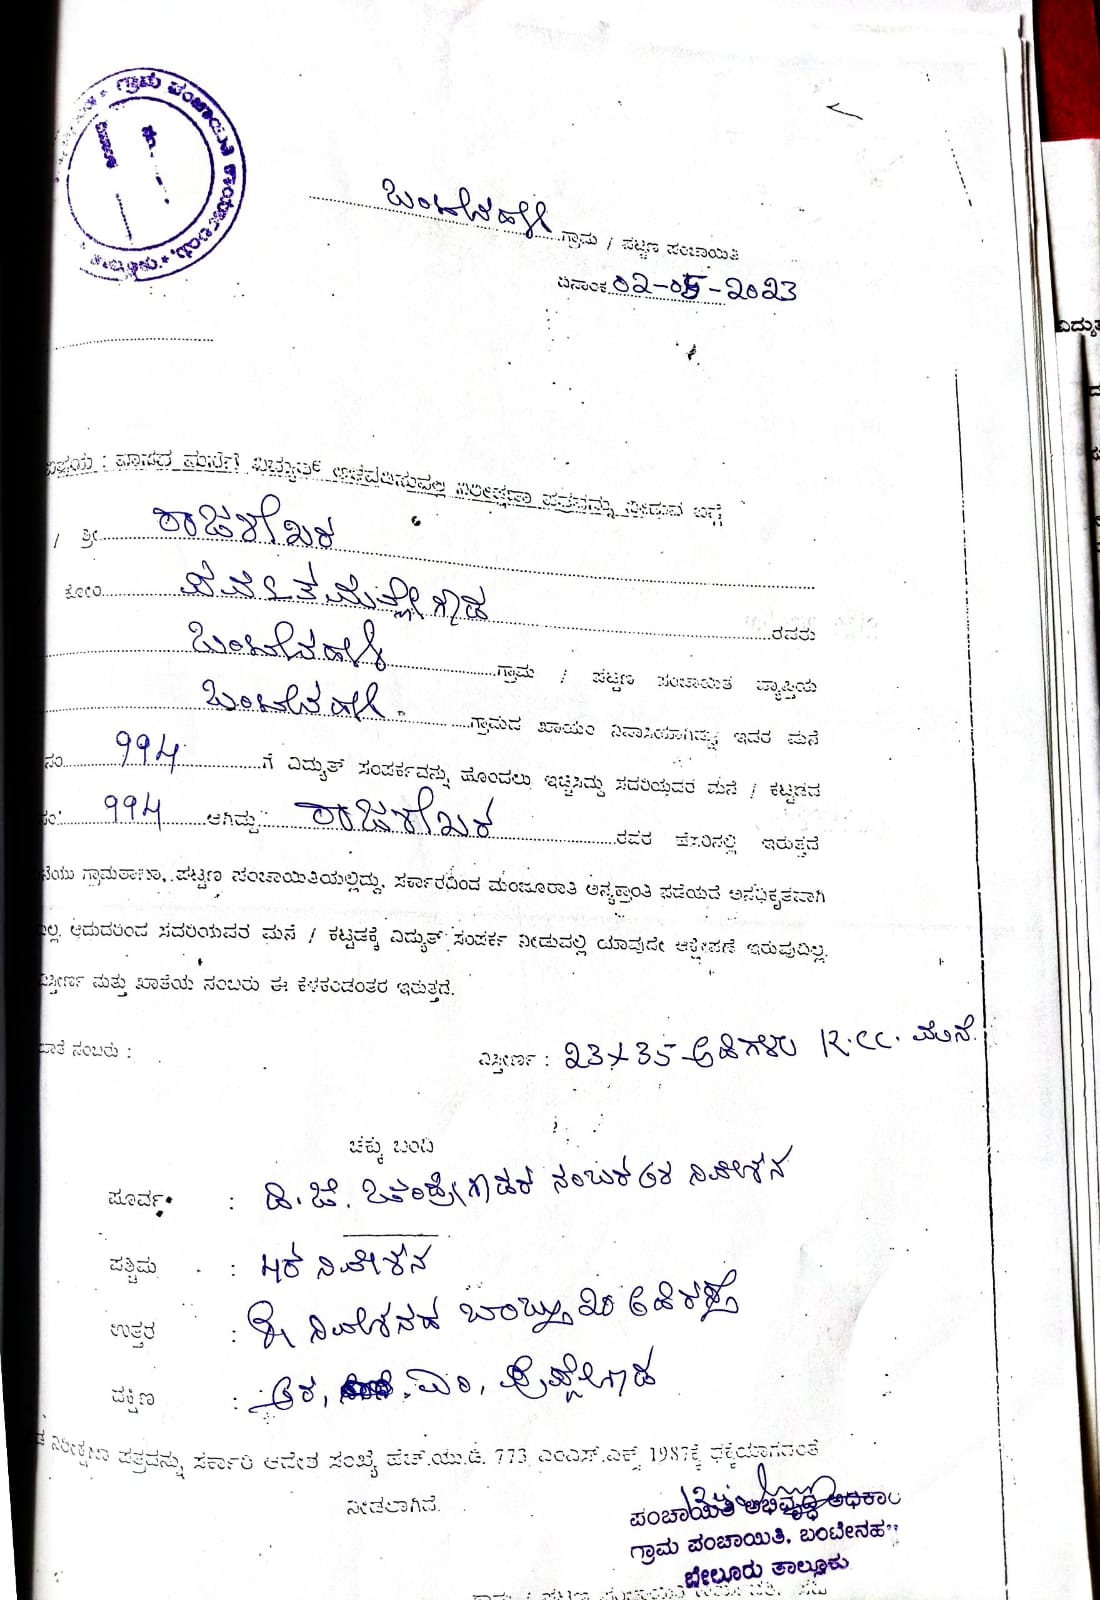 ಗ್ರಾಮ ಪಂಚಾಯಿತಿ ಕಾರ್ಯಾಲಯ
ಬಂಟೇನಹಳ್ಳಿ ಗ್ರಾಮ / ಪಟ್ಟಣ ಪಂಚಾಯಿತಿ
ದಿನಾಂಕ 02-05-2023
ವಿಷಯ : ವಾಸದ ಮನೆಗೆ ವಿದ್ಯುತ್ ನಿರೀಕ್ಷಣಾ ಪತ್ರವನ್ನು ನೀಡುವ ಬಗ್ಗೆ
/ ಶ್ರೀ ರಾಜಶೇಖರ
ಕೋಂ ರವರು
ಬಂಟೇನಹಳ್ಳಿ ಗ್ರಾಮ / ಪಟ್ಟಣ ಪಂಚಾಯಿತಿ ವ್ಯಾಪ್ತಿಯ
ಬಂಟೇನಹಳ್ಳಿ ಗ್ರಾಮದ ಖಾಯಂ ನಿವಾಸಿಯಾಗಿದ್ದು, ಇವರ ಮನೆ
ನಂ ೧೧೪ ಗೆ ವಿದ್ಯುತ್ ಸಂಪರ್ಕವನ್ನು ಹೊಂದಲು ಇಚ್ಛಿಸಿದ್ದು ಸದರಿಯವರ ಮನೆ / ಕಟ್ಟಡದ
ನಂ ೧೧೪ ಆಗಿದ್ದು ರಾಜಶೇಖರ ರವರ ಹೆಸರಿನಲ್ಲಿ ಇರುತ್ತದೆ
ಗ್ರಾಮಠಾಣಾ, ಪಟ್ಟಣ ಪಂಚಾಯಿತಿಯಲ್ಲಿದ್ದು, ಸರ್ಕಾರದಿಂದ ಮಂಜೂರಾತಿ ಅನ್ಯಕ್ರಾಂತಿ ಪಡೆಯದೆ ಅನಧಿಕೃತವಾಗಿ
ಆದುದರಿಂದ ಸದರಿಯವರ ಮನೆ / ಕಟ್ಟಡಕ್ಕೆ ವಿದ್ಯುತ್ ಸಂಪರ್ಕ ನೀಡುವಲ್ಲಿ ಯಾವುದೇ ಆಕ್ಷೇಪಣೆ ಇರುವುದಿಲ್ಲ.
ವಿಸ್ತೀರ್ಣ ಮತ್ತು ಖಾತೆಯ ನಂಬರು ಈ ಕೆಳಕಂಡಂತರ ಇರುತ್ತದೆ.
ಖಾತೆ ನಂಬರು :
ವಿಸ್ತೀರ್ಣ : 23×35 ಅಡಿಗಳು R.CC. ಮನೆ.
ಚಕ್ಕು ಬಂದಿ
ಪೂರ್ವ : ಡಿ.ಜೆ. ಚಂದ್ರೇಗೌಡರ ನಿವೇಶನ
ಪಶ್ಚಿಮ : ನಿವೇಶನ
ಉತ್ತರ : ಈ ನಿವೇಶನದ ಬಾಬ್ತು 20 ಅಡಿ ರಸ್ತೆ
ದಕ್ಷಿಣ :
ನಿರೀಕ್ಷಣಾ ಪತ್ರವನ್ನು ಸರ್ಕಾರಿ ಆದೇಶ ಸಂಖ್ಯೆ ಹೆಚ್.ಯು.ಡಿ. 773 ಎಂಎಸ್.ಎಕ್ಸ್ 1987ಕ್ಕೆ ಧಕ್ಕೆಯಾಗದಂತೆ
ನೀಡಲಾಗಿದೆ.
ಪಂಚಾಯಿತಿ ಅಭಿವೃದ್ಧಿ ಅಧಿಕಾರಿ
ಗ್ರಾಮ ಪಂಚಾಯಿತಿ, ಬಂಟೇನಹಳ್ಳಿ
ಬೇಲೂರು ತಾಲ್ಲೂಕು